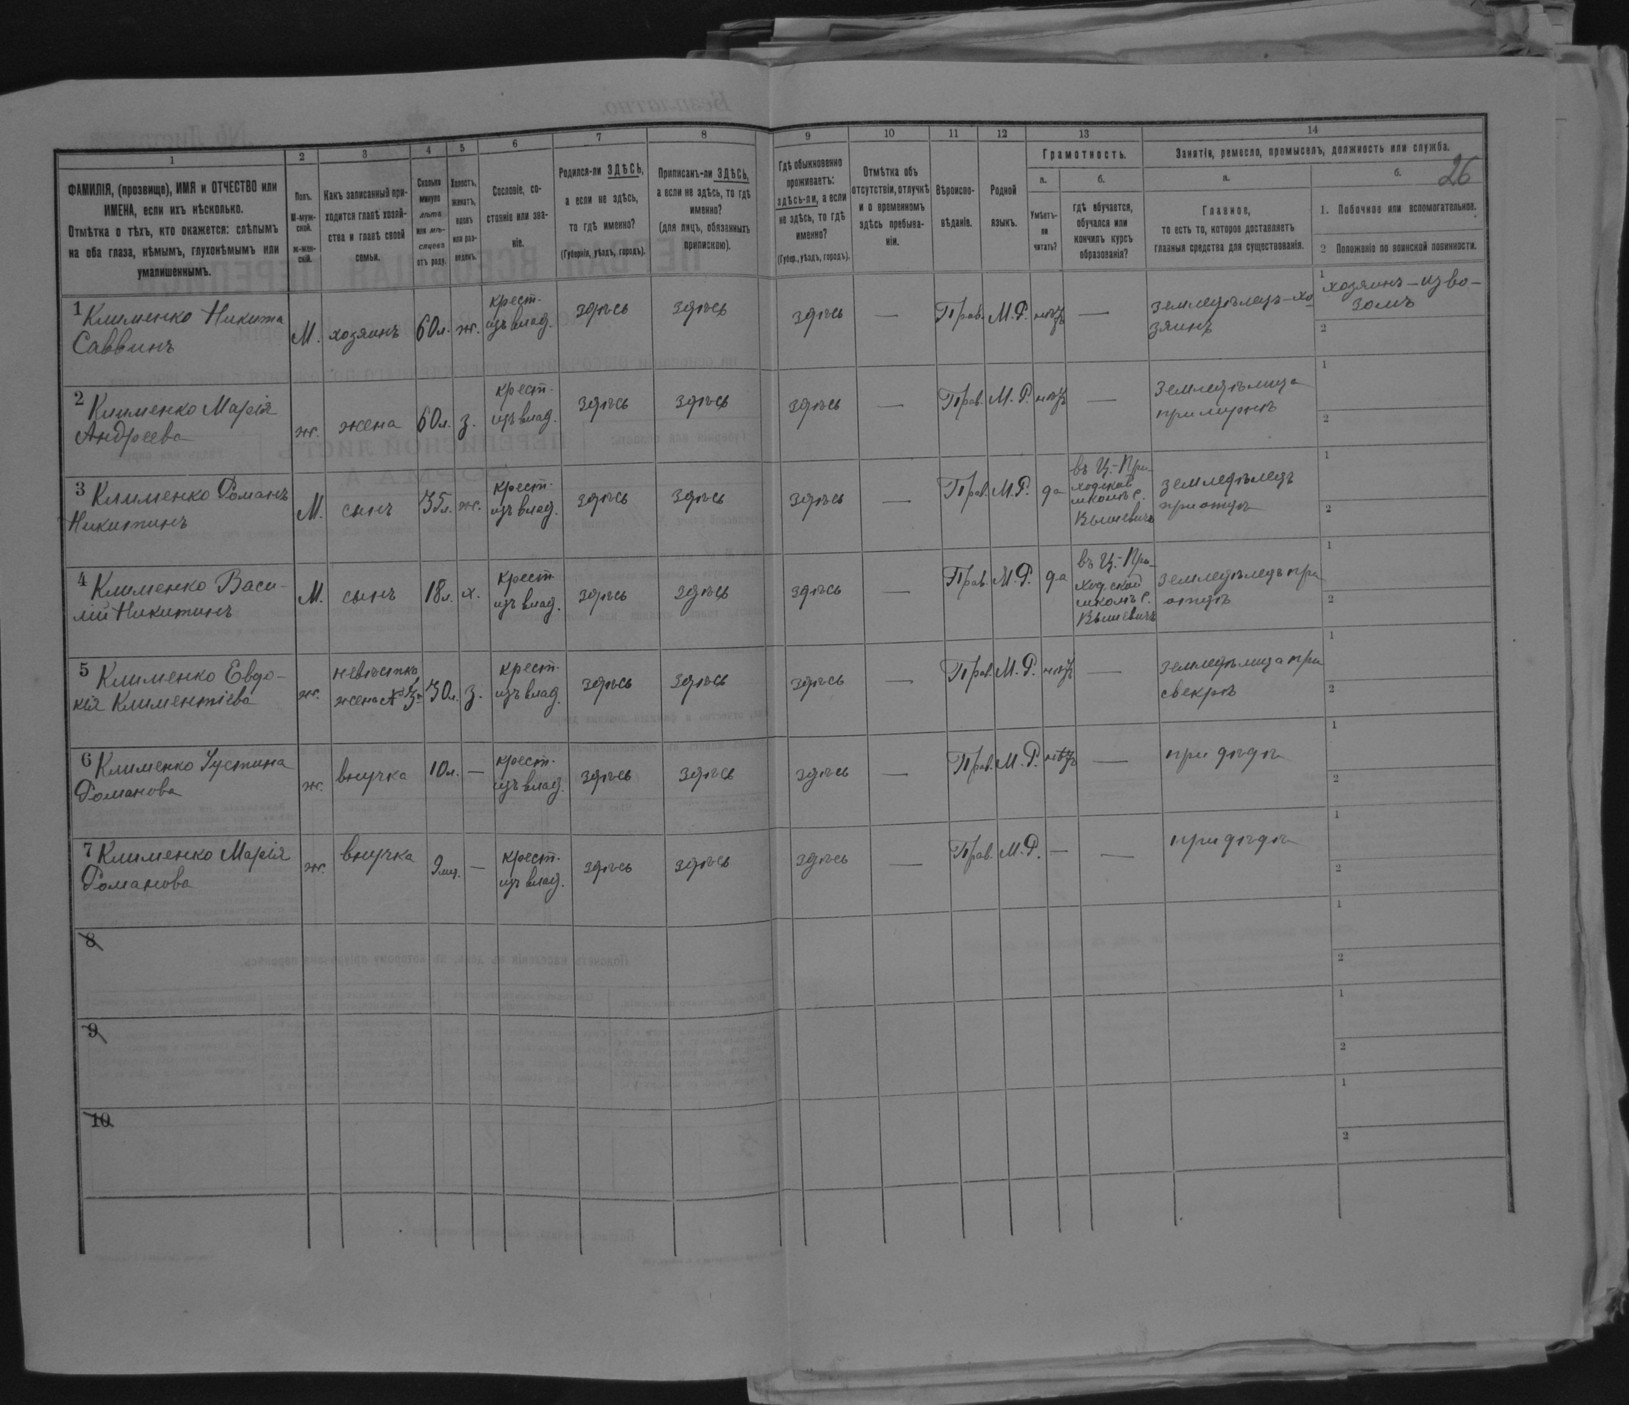 26
1
2
3
4
5
6
7
8
9
10
11
12
13
14
ФАМИЛІЯ, (прозвище), ИМЯ и ОТЧЕСТВО или
ИМЕНА, если ихъ нѣсколько.
Отмѣтка о тѣхъ, кто окажется: слѣпымъ
на оба глаза, нѣмымъ, глухонѣмымъ или
умалишеннымъ.
Полъ.
М-муж-
ской.
ж-жен-
скій.
Какъ записанный при-
ходится главѣ хозяй-
ства и главѣ своей
семьи.
Сколько
минуло
лѣтъ
или мѣ-
сяцевъ
отъ роду.
Холостъ,
женатъ,
вдовъ
или раз-
веденъ.
Сословіе, со-
стояніе или зва-
ніе.
Родился-ли ЗДѢСЬ,
а если не здѣсь,
то гдѣ именно?
(Губернія, уѣздъ, городъ).
Приписанъ-ли ЗДѢСЬ,
а если не здѣсь, то гдѣ
именно?
(для лицъ, обязанныхъ
припискою).
Гдѣ обыкновенно
проживаетъ:
здѣсь-ли, а если
не здѣсь, то гдѣ
именно?
(Губер., уѣздъ, городъ).
Отмѣтка объ
отсутствіи, отлучкѣ
и о временномъ
здѣсь пребыва-
ніи.
Вѣроиспо-
вѣданіе.
Родной
языкъ.
Грамотность.
а.
Умѣетъ-
ли
читать?
б.
гдѣ обучается,
обучался или
кончилъ курсъ
образованія?
Занятія, ремесло, промыселъ, должность или служба.
а.
Главное,
то есть то, которое доставляетъ
главныя средства для существованія.
б.
1. Побочное или вспомогательное.
2 Положеніе по воинской повинности.
1 Клименко Никита
Саввинъ
М.
хозяинъ
60 л.
ж.
крест.
изъ влад.
здѣсь
здѣсь
здѣсь
—
Прав.
М.Р.
нѣтъ
—
земледѣлецъ-хо
зяинъ
1 хозяинъ-изво-
зомъ
2
2 Клименко Марія
Андреева
ж.
жена
60 л.
з.
крест.
изъ влад.
здѣсь
здѣсь
здѣсь
—
Прав.
М.Р.
нѣтъ
—
земледѣлица
при мужѣ
1
2
3 Клименко Романъ
Никитинъ
М.
сынъ
35 л.
ж.
крест.
изъ влад.
здѣсь
здѣсь
здѣсь
—
Прав.
М.Р.
да
въ Ц.-При-
ходской
школѣ с.
Вышевичъ
земледѣлецъ
при отцѣ
1
2
4 Клименко Васи-
лій Никитинъ
М.
сынъ
18 л.
х.
крест.
изъ влад.
здѣсь
здѣсь
здѣсь
—
Прав.
М.Р.
да
въ Ц.-При-
ходской
школѣ с.
Вышевичъ
земледѣлецъ при
отцѣ
1
2
5 Клименко Евдо-
кія Климентіева
ж.
невѣстка
жена №3й
30 л.
з.
крест.
изъ влад.
здѣсь
здѣсь
здѣсь
—
Прав.
М.Р.
нѣтъ
—
земледѣлица при
свекрѣ
1
2
6 Клименко Устина
Романова
ж.
внучка
10 л.
—
крест.
изъ влад.
здѣсь
здѣсь
здѣсь
—
Прав.
М.Р.
нѣтъ
—
при дѣдѣ
1
2
7 Клименко Марія
Романова
ж.
внучка
9 мц.
—
крест.
изъ влад.
здѣсь
здѣсь
здѣсь
—
Прав.
М.Р.
—
—
при дѣдѣ
1
2
8
1
2
9
1
2
10
1
2